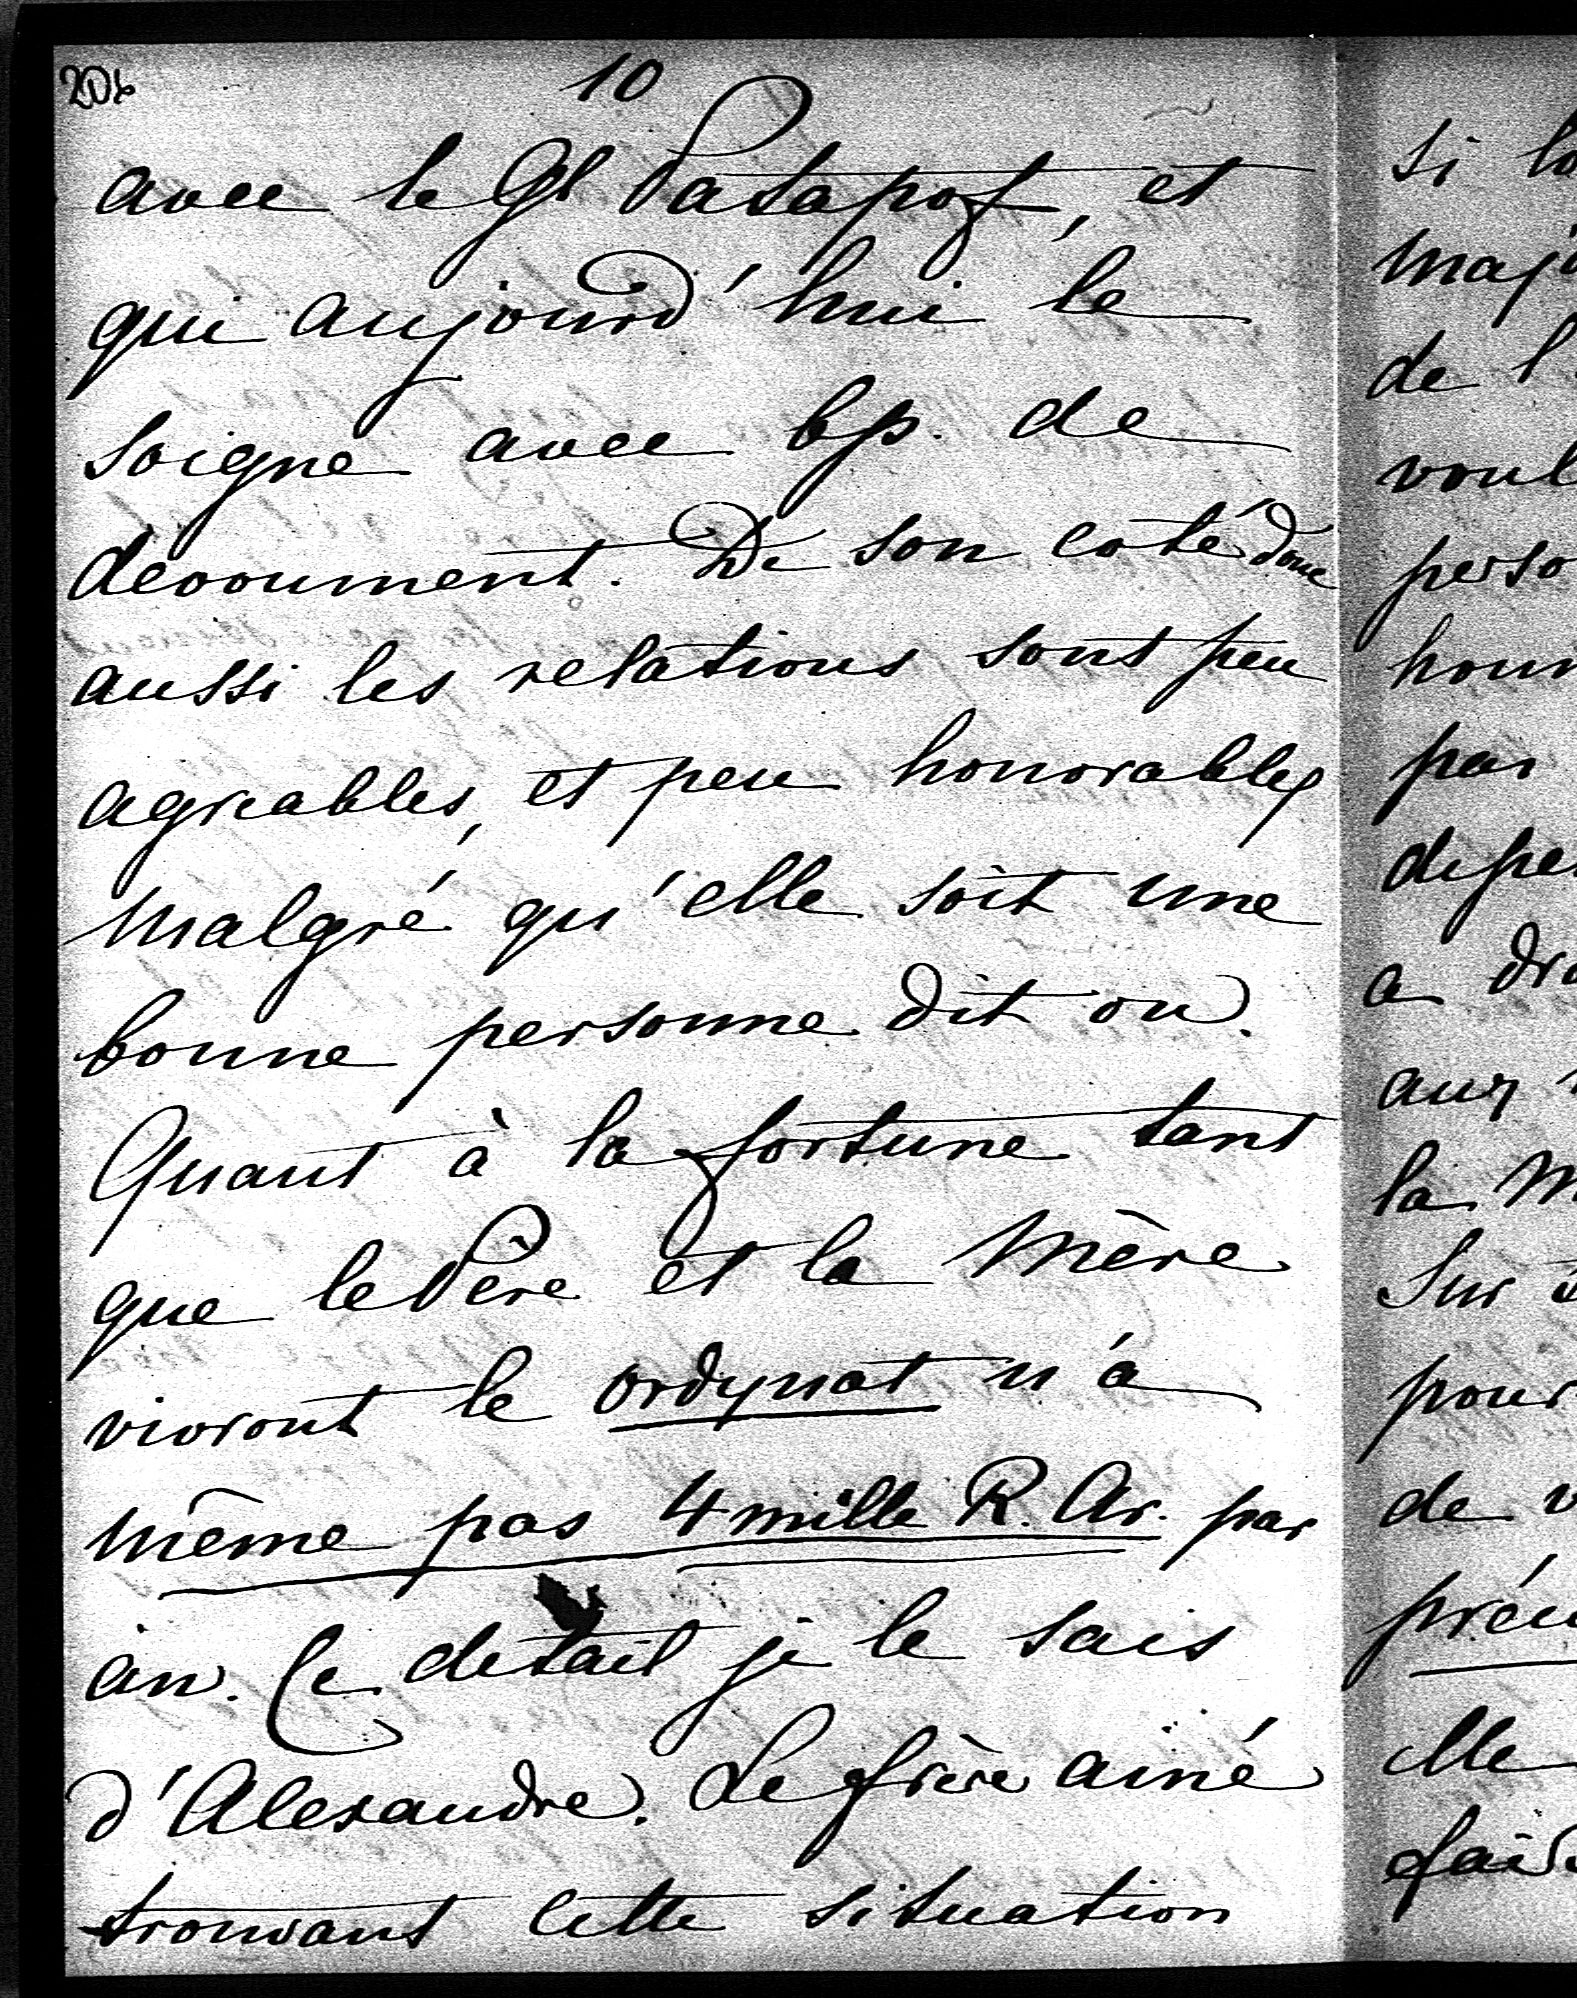 206
10
avec le Gl Patapof, et
qui aujourd'hui le
soigne avec bp. de
devoument. De son coté donc
aussi les relations sont peu
agreables, et peu honorables
malgré qu'elle soit une
bonne personne dit on.
Quant à la fortune tant
que le Père et la Mère
vivront le ordynat n'a
même pas 4 mille R. Ar. par
an. Ce detail je le sais
d'Alexandre. Le frère ainé
trouvant cette situation
si
de l'
par
a
la
Sur
de
elle